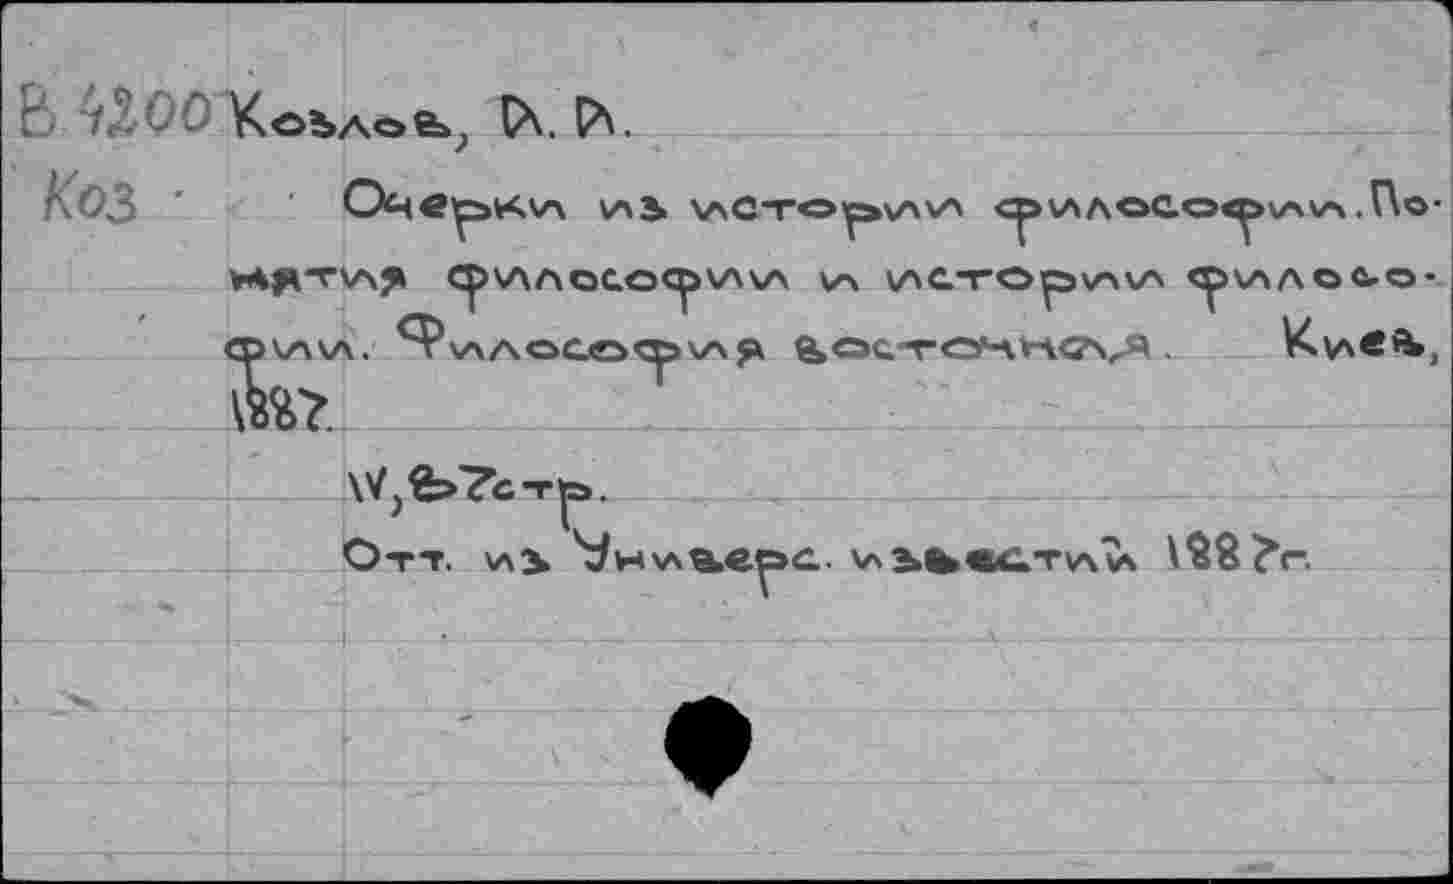 В 4200 Козлов, А. А.
Коз Очерки из истории философии. По-
нятия философии и истории филосо-
фии. Философия восточная. Киев,
1887.
IV, 87стр.
Отт. из Универс. известий 1887г.